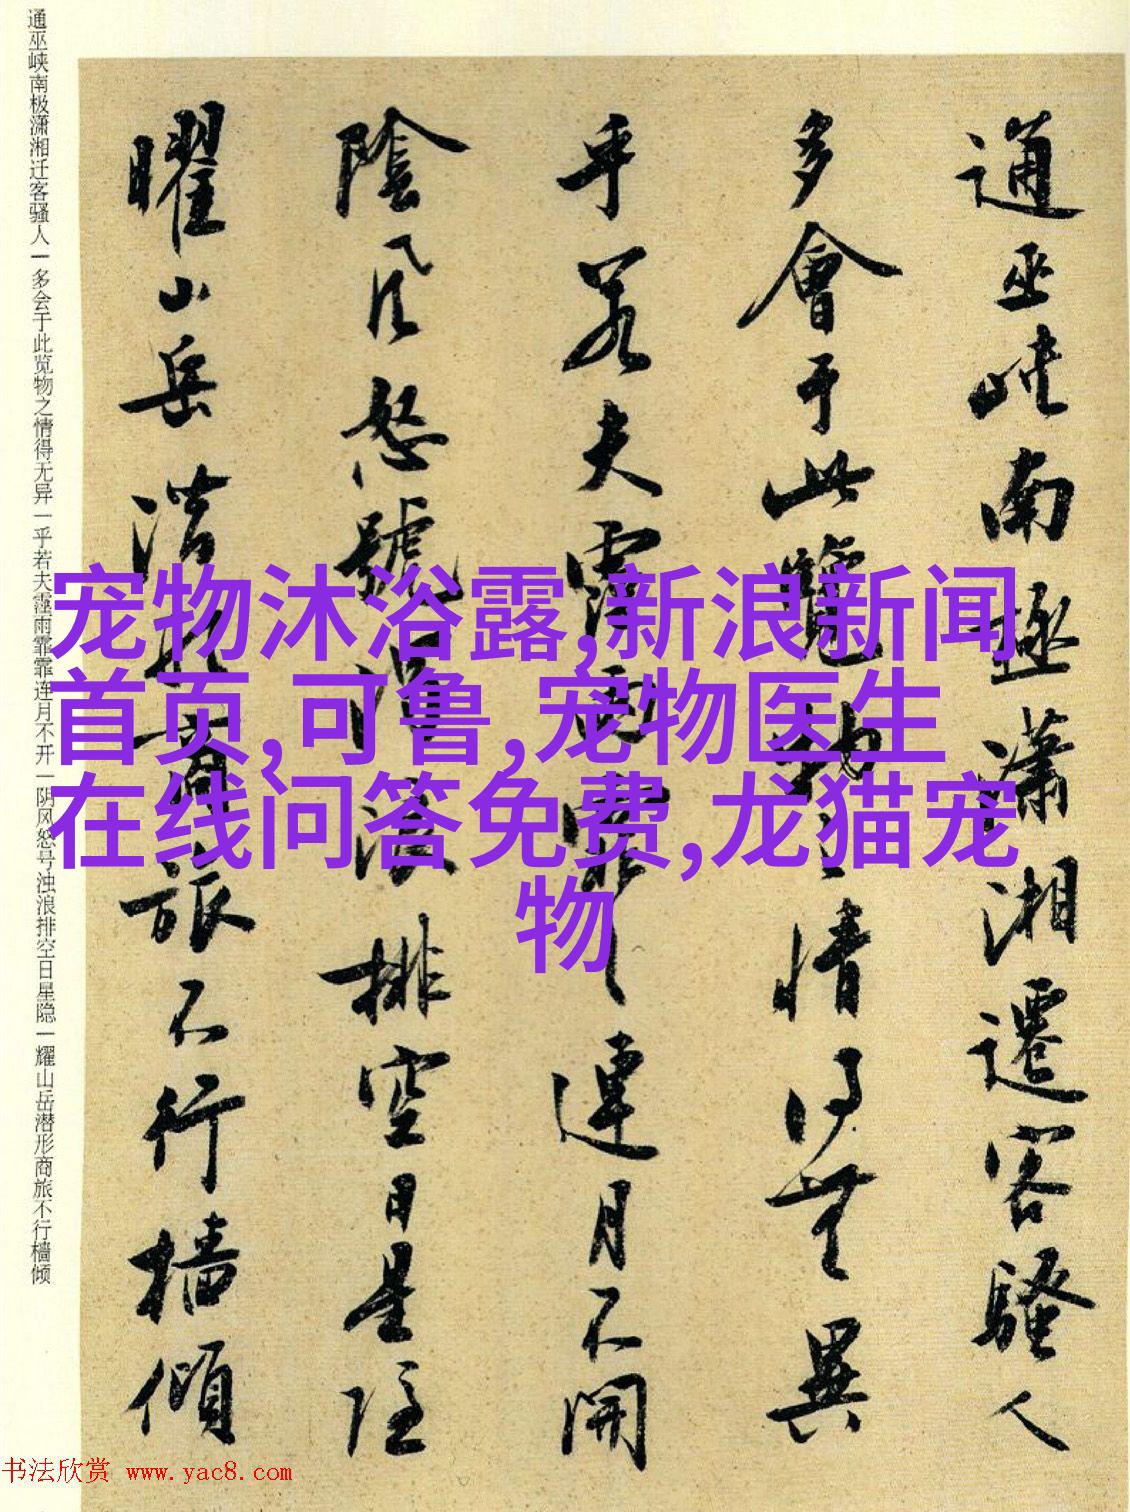 通巫峡南极潇湘迁客骚人一多会于此览物之情得无异一乎若夫霪雨霏霏连月不开一阴风怒号浊浪排空日星隐一耀山岳潜形商旅不行樯倾
通巫峡南極瀟湘遷客騷人
多會于此覽物之情得無異
乎若夫霪雨霏霏連月不開
陰風怒號濁浪排空日星隐
曜山岳潜形商旅不行檣傾
宠物沐浴露,新浪新闻
首页,可鲁,宠物医生
在线问答免费,龙猫宠
物
书法欣赏 www.yac8.com